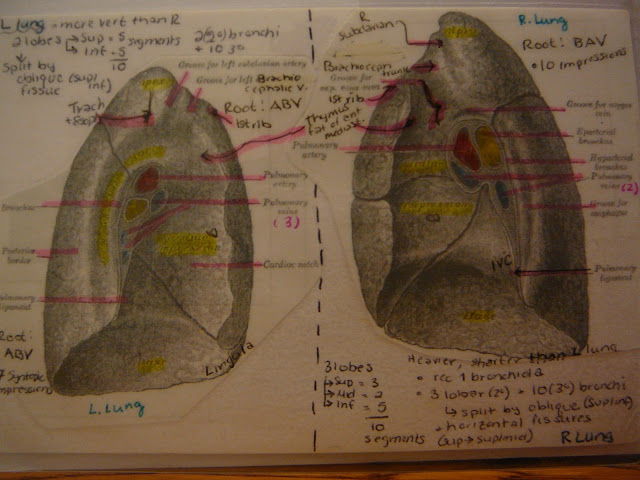 L lung - more vert than R
2 lobes
Sup = 5
Inf = 5
10
segments
2 (2°) bronchi
+ 10 3°
Split by
oblique (sup/
fissue inf)
Groove for left subclavian artery
Groove for left Brachio
cephalic v.
Root: ABV
1st rib
Trach
Thymus
fat of ant
mediast.
Apex
Pulmonary
artery
Pulmonary
veins
(3)
Bronchus
Posterior
border
Cardiac notch
Pulmonary
ligament
Root:
ABV
impressions
Base
Lingula
L. Lung
R
Subclavian
Brachiocep
trunk
Groove for
sup. vena cava
1st rib
Apex
R. Lung
Root: BAV
• 10 impressions
Groove for azygos
vein
Eparterial
bronchus
Hyparterial
bronchus
Pulmonary
veins (2)
Groove for
esophagus
Pulmonary
artery
Impression
IVC
Pulmonary
ligament
Base
3 lobes
Sup = 3
Mid = 2
Inf = 5
10
segments
Heavier, shorter than L lung
• rec 1 bronchial a
• 3 lobar (2°) + 10 (3°) bronchi
↳ split by oblique (sup/inf)
+ horizontal fissures
(sup → sup/mid)
R Lung